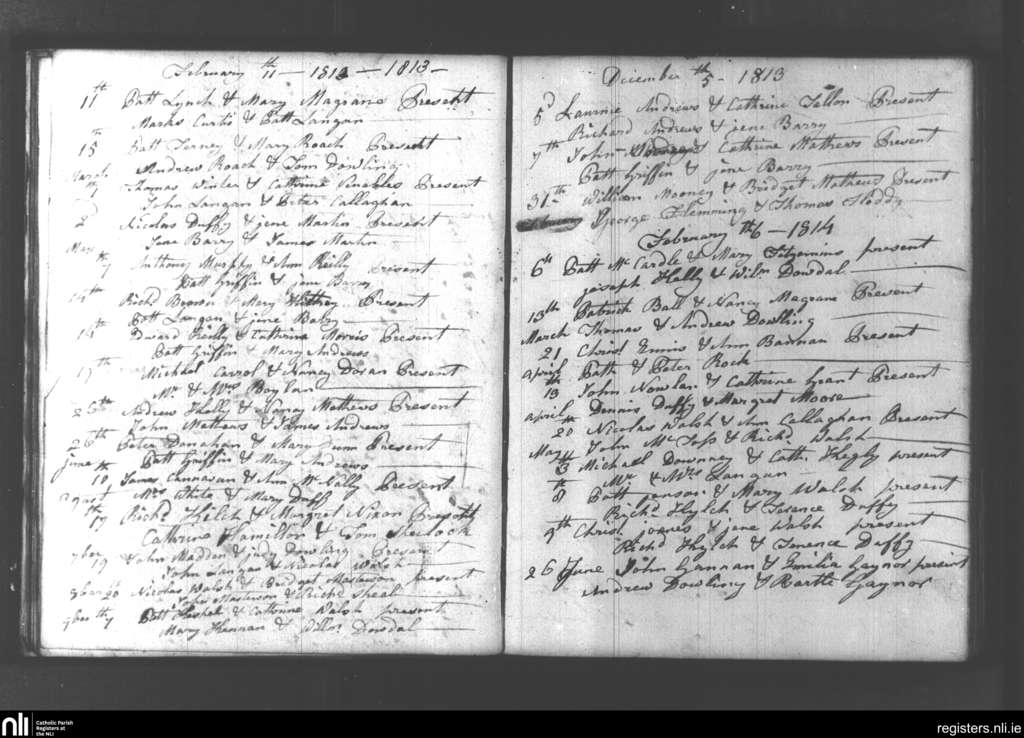 February 11th — 1813 — 1813 —
11th Patt Lynch & Mary Magrane Present
Marks Curtis & Patt Langan
15th Patt Terney & Mary Roach Present
Andrew Roach & Tom Dowling
March
7th Thomas Winter & Cathrine Venables Present
John Langan & Peter Callaghan
2 Nicolas Duffy & jene Martin Present
Jene Barry & James Martin
May
7th Anthony Murphy & Ann Reilly present
Patt Griffin & jene Barry
14th Richd Brown & Mary Present
Patt Langan & jene Barry
14th Edward Reilly & Cathrine Morris Present
Patt Griffin & Mary Andrews
17th Michael Carrol & Nancy Doran Present
Mr. & Mrs Boylan
25th Andrew Kelly & Nancy Mathews Present
John Mathews & James Andrews
26th Peter Danahan & Mary Present
Patt Griffin & Mary Andrews
June
10th James Cannavan & Ann McNally Present
Mrs White & Mary Duffy
August
17 Richd & Margret Nixon Present
Cathrine Hamillton & Tom Sherlock
7ber
19 John Madden & judy Dowling Present
John Langan & Nicolas Walsh
8ber 20 Nicolas Walsh & Bridget Masterson present
Masterson & Richd Sheal
9ber 7th Patt & Cathrine Walsh present
Mary Hannan & Willm Dowdal
December 5th - 1813
5d Laurnce Andrews & Cathrine Fellon Present
Richard Andrews & jene Barry
7th John & Cathrine Mathews Present
Patt Griffin & jene Barry
31th William Mooney & Bridget Mathews Present
George Flemming & Thomas Hoddy
February 6th — 1814
6th Patt McCardle & Mary Fitzsimins present
joseph Kelly & Wilm Dowdal
13th Patrick Ball & Nancy Magrane Present
Thomas & Andrew Dowling
March
21 Christ Ennis & Ann Present
Patt & Peter Rock
april
13th John Nowlan & Cathrine Grant Present
Dennis Duffy & Margret Moore
april
20th Nicolas Walsh & Ann Callaghan Present
John & Richd Walsh
May
3 Michael Downney & Cath. present
Mr & Mrs Langan
8th Patt janson & Mary Walsh present
Richd & Terence Duffy
9th Christ joenes & jene Walsh present
Richd & Terence Duffy
26 June John Hannan & Emilia Gaynor present
Andrew Dowling & Bartle Gaynor
nli
Catholic Parish
Registers at
the NLI
registers.nli.ie